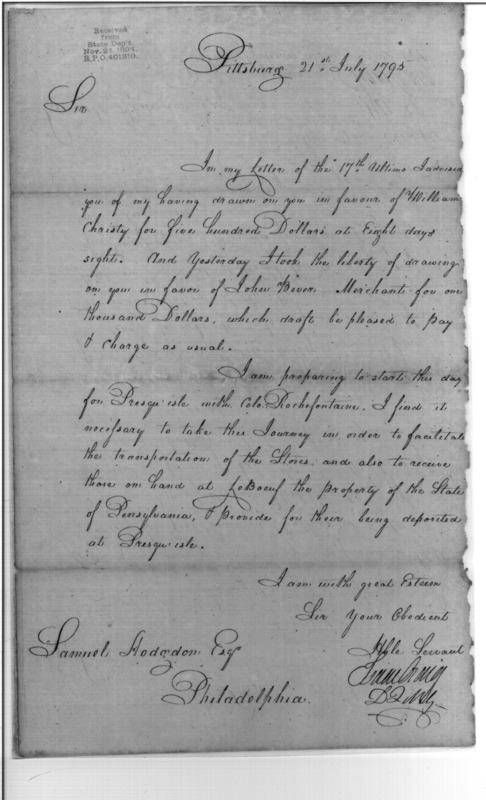 Received
from
State Dep't.
Nov. 21, 1894.
R.P.O. 401310.
Pittsburg 21st July 1795
Sir
In my Letter of the 17th Ultimo I advised
you of my having drawn on you in favour of William
Christy for five hundred Dollars at Eight days
sight. And Yesterday I took the liberty of drawing
on you in favor of John Bever Merchant for one
thousand Dollars, which draft be pleased to pay
& charge as usual.
I am preparing to start this day
for Presqu'isle with Colo. Rochefontaine. I find it
necessary to take this Journey in order to facilitate
the transportation of the Stores, and also to receive
those on hand at LeBoeuf the property of the State
of Pensylvania, & provide for their being deposited
at Presqu'isle.
I am with great Esteem
Sir Your Obedient
Hble Servant
Isaac Craig
D.Q.M.G.
Samuel Hodgdon Esqr
Philadelphia.